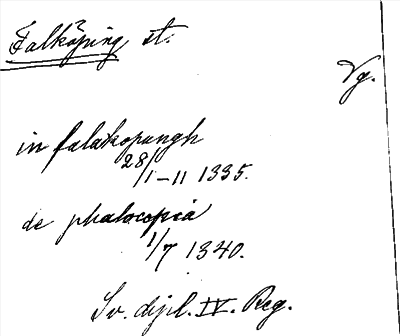 Falköping st.
Vg.
in falakopungh
28/1-11 1335.
de phalocopia
1/7 1340.
Sv. dipl. IV. Reg.